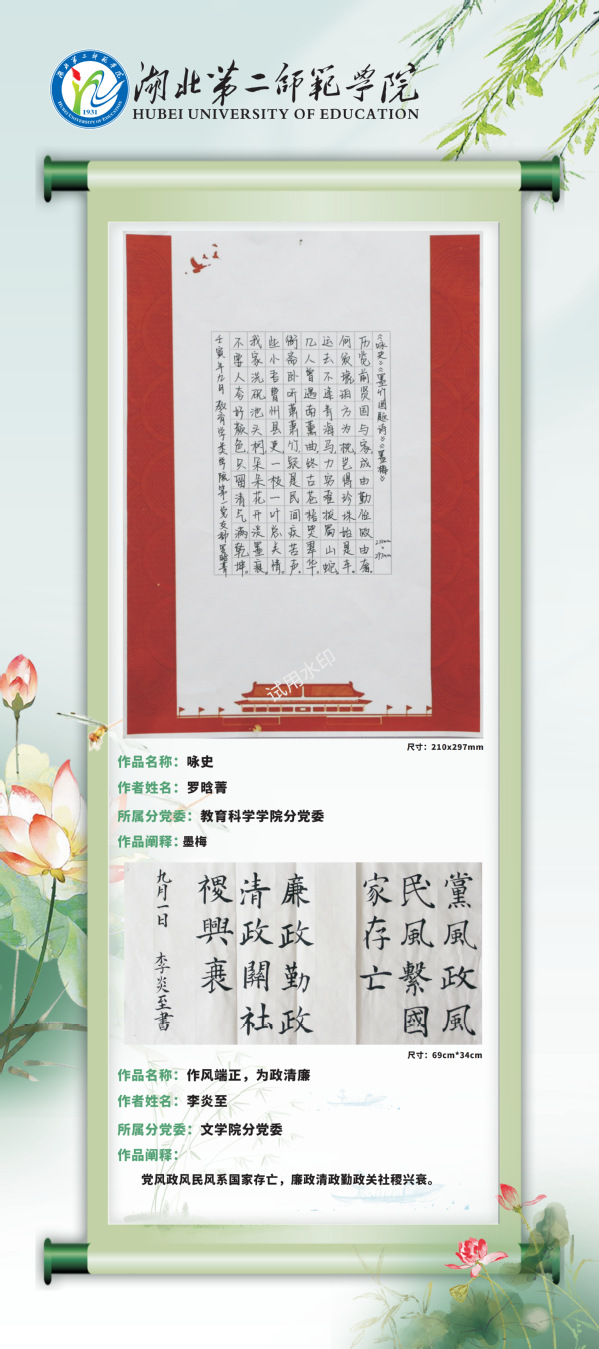 湖北第二师范学院
HUBEI UNIVERSITY OF EDUCATION
湖北第二师范学院
1931
HUBEI UNIVERSITY OF EDUCATION
《咏史》《墨竹图题诗》《墨梅》
210mm
×
297mm
历览前贤国与家,成由勤俭破由奢。
何须琥珀方为枕,岂得珍珠始是车。
远去不逢青海马,力穷难拔蜀山蛇。
几人曾遇南熏曲,终古苍梧哭翠华。
衙斋卧听萧萧竹,疑是民间疾苦声。
些小吾曹州县吏,一枝一叶总关情。
我家洗砚池头树,朵朵花开淡墨痕。
不要人夸好颜色,只留清气满乾坤。
壬寅年九月 教育科学学院第一党支部罗晗菁
试用水印
尺寸:210x297mm
作品名称:咏史
作者姓名:罗晗菁
所属分党委:教育科学学院分党委
作品阐释:墨梅
黨風政風
民風繫國
家存亡
廉政勤政
清政關社
稷興衰
九月一日 李炎至書
尺寸:69cm*34cm
作品名称:作风端正,为政清廉
作者姓名:李炎至
所属分党委:文学院分党委
作品阐释:
党风政风民风系国家存亡,廉政清政勤政关社稷兴衰。